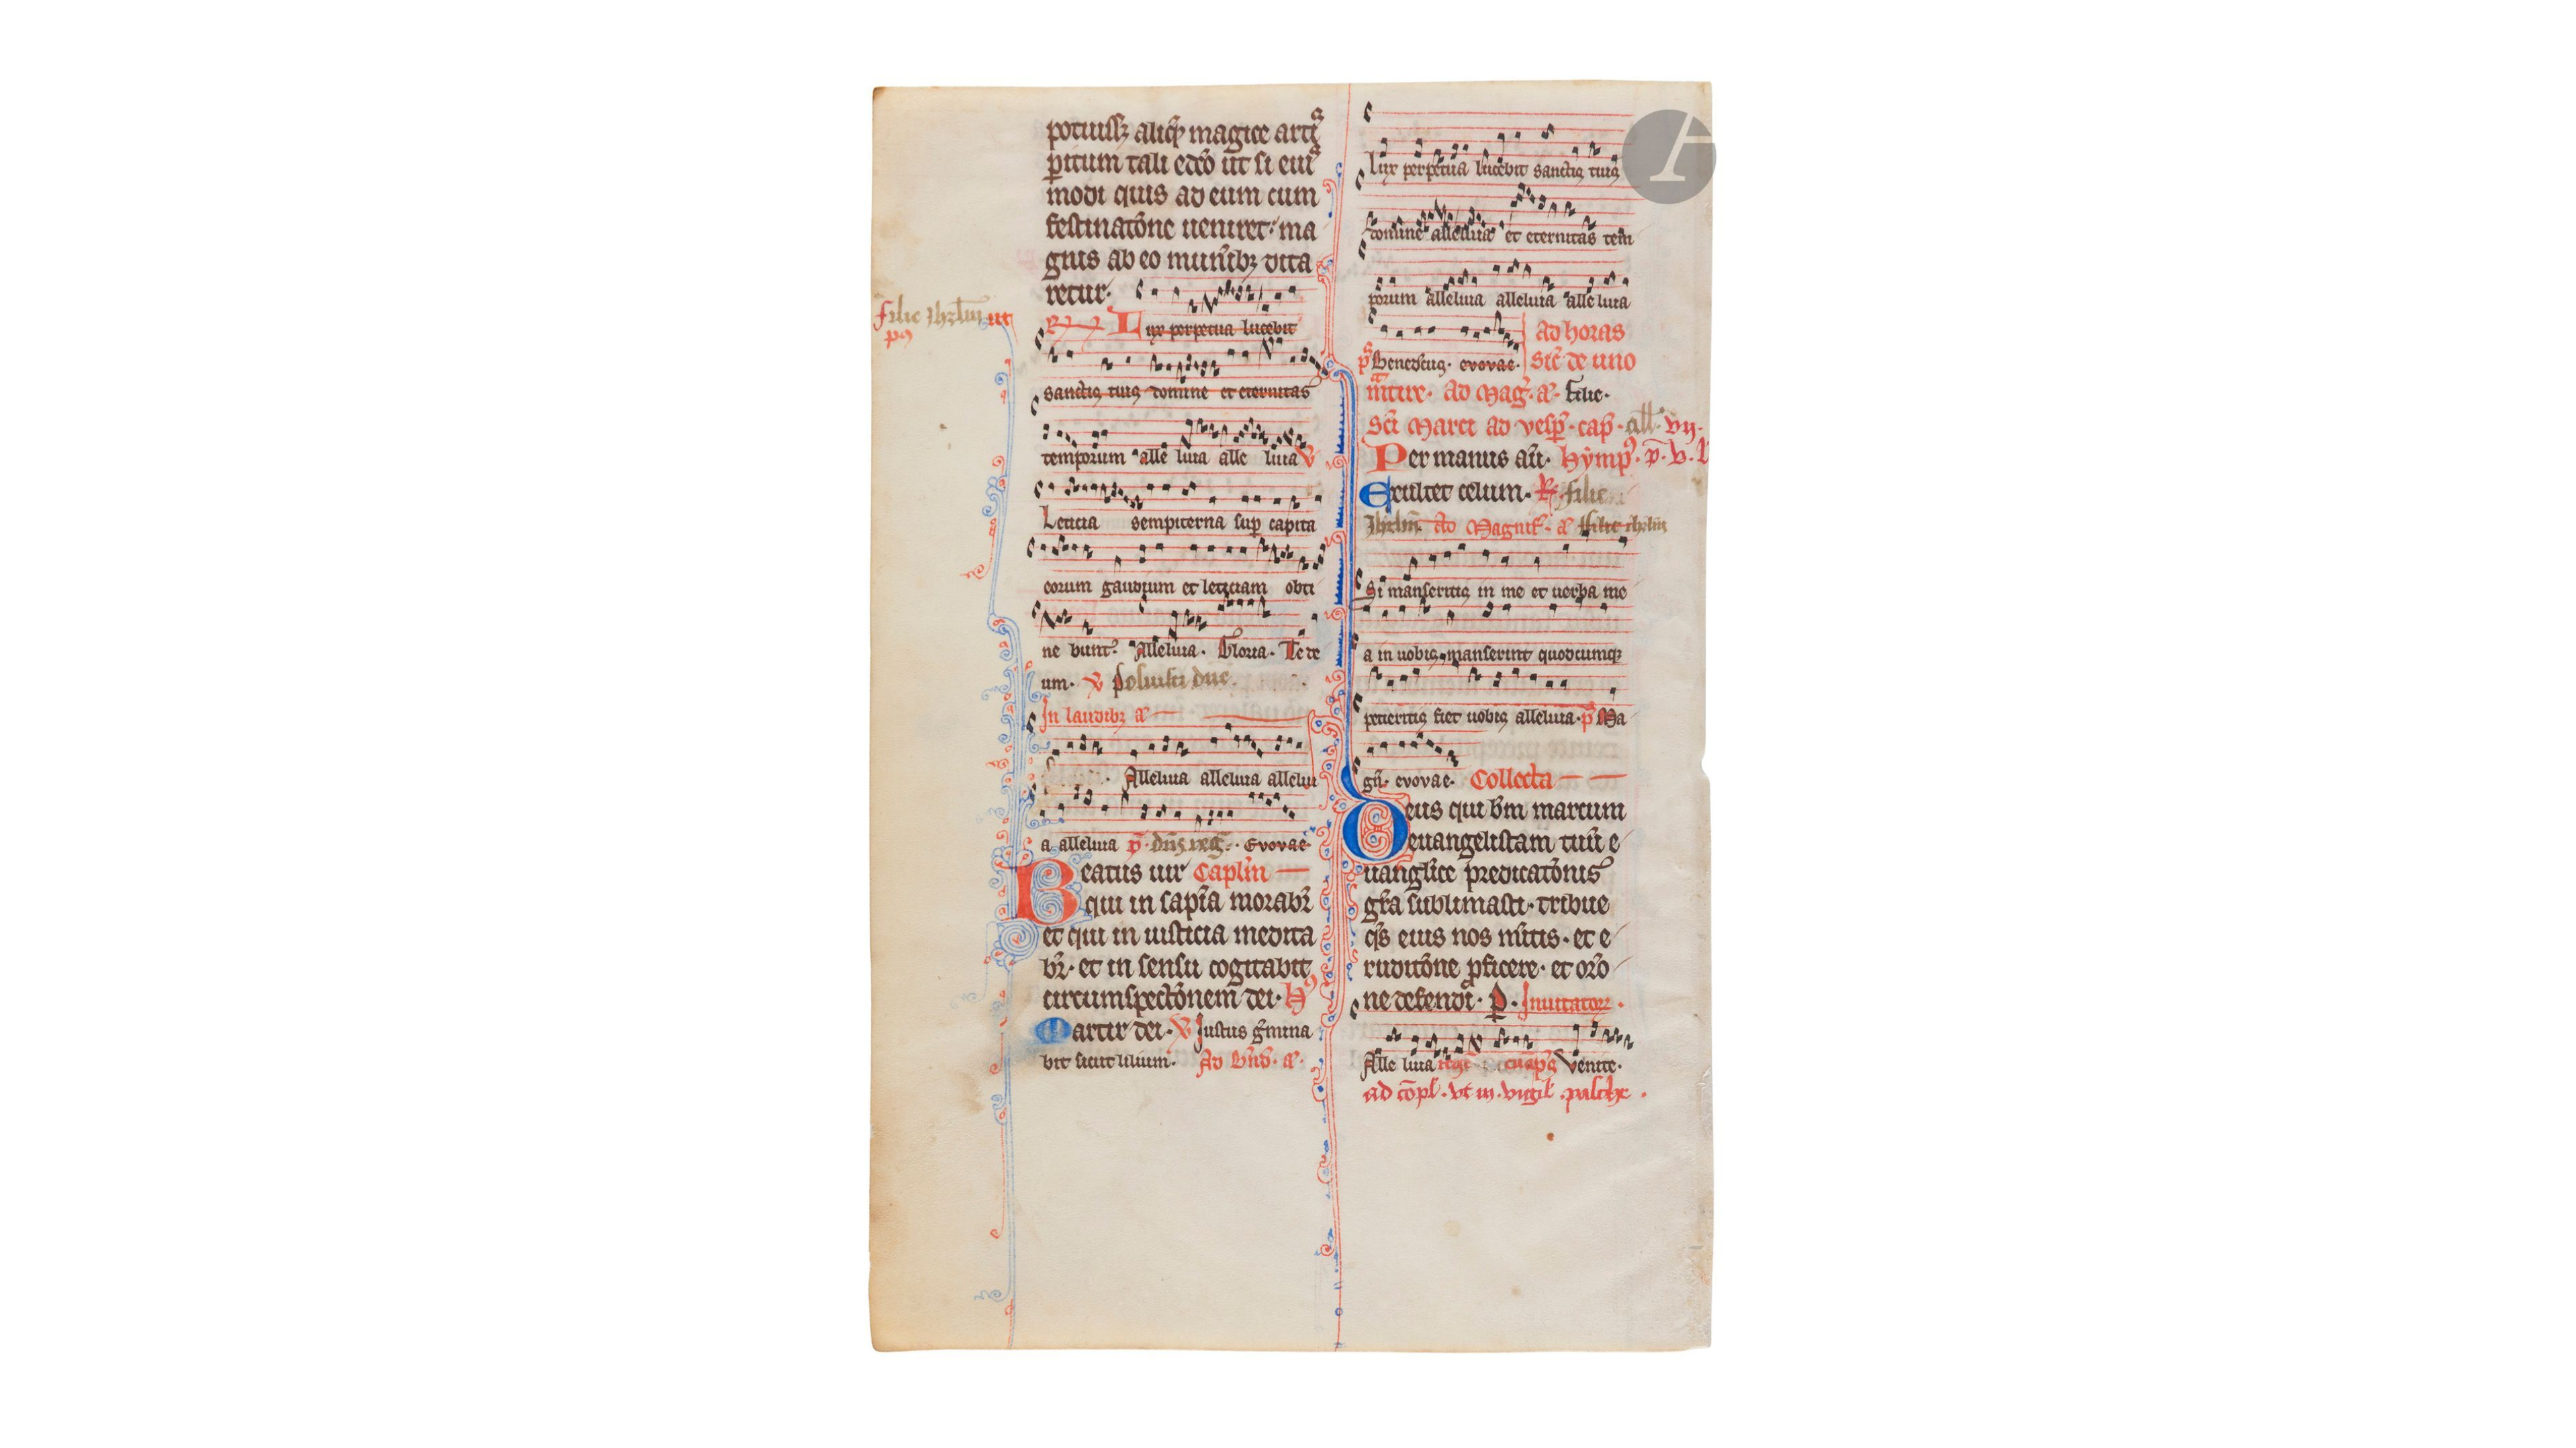 potuissꝫ aliqͥ magice artꝭ
ꝑitum tali edc̄o ut si eiuꝰ
modi quis ad eum cum
festinatōne ueniret· ma
gnis ab eo munībꝫ dita
retur·
filie Ihrlm̄ ut
Lux perpetua lucebit
sanctis tuis domine et eternitas
temporum alle luia alle luia ℣
Leticia sempiterna sup̄ capita
eorum gaudium et leticiam obti
ne bunt· Alleluia· Gloria· Te de
um· ℣ posuisti dn̄e
In laudibꝫ a͞
Alleluia alleluia allelui
a alleluia p̄· dn̄s reḡ· Evovae
Beatus uir Capl̄m
qui in sapīa morabr̄
et qui in iusticia medita
br̄· et in sensu cogitabit
circumspectōnem dei· Hꝰ
Martir dei· ℣ Iustus gm̄ina
bit sicut lilium· Ad bn̄d· a͞·
Lux perpetua lucebit sanctis tuis
domine alleluia et eternitas tem
porum alleluia alleluia alle luia
ad horas
pͫ Benedictus· evovae· sic̄ de uno
mr̄ire· Ad Maḡ· a͞· Filie·
Sc̄i Marci ad vesp̄· cap̄· all̄· vij·
Per manus aū· hymꝰ· p̄· V· l
Exultet celum· ℟ filie
Ihrlm̄· Ad Magnif̄· a͞ filie ihrlm̄
Si manseritis in me et uerba me
a in uobis manserint quodcumqꝫ
petieritis fiet uobis alleluia· p̄ Ma
gn̄· evovae· Collecta
Deus qui bm̄ marcum
euangelistam tuū e
uangl̄ice predicatōnis
gr̄a sublimasti· tribue
qs̄ eius nos m̄itis· et e
ruditōne ꝓficere· et or̄o
ne defendi· P̄· Inuitator̄·
Alle luia Venite·
ad cōpl̄· vt in vigil̄· pasche·